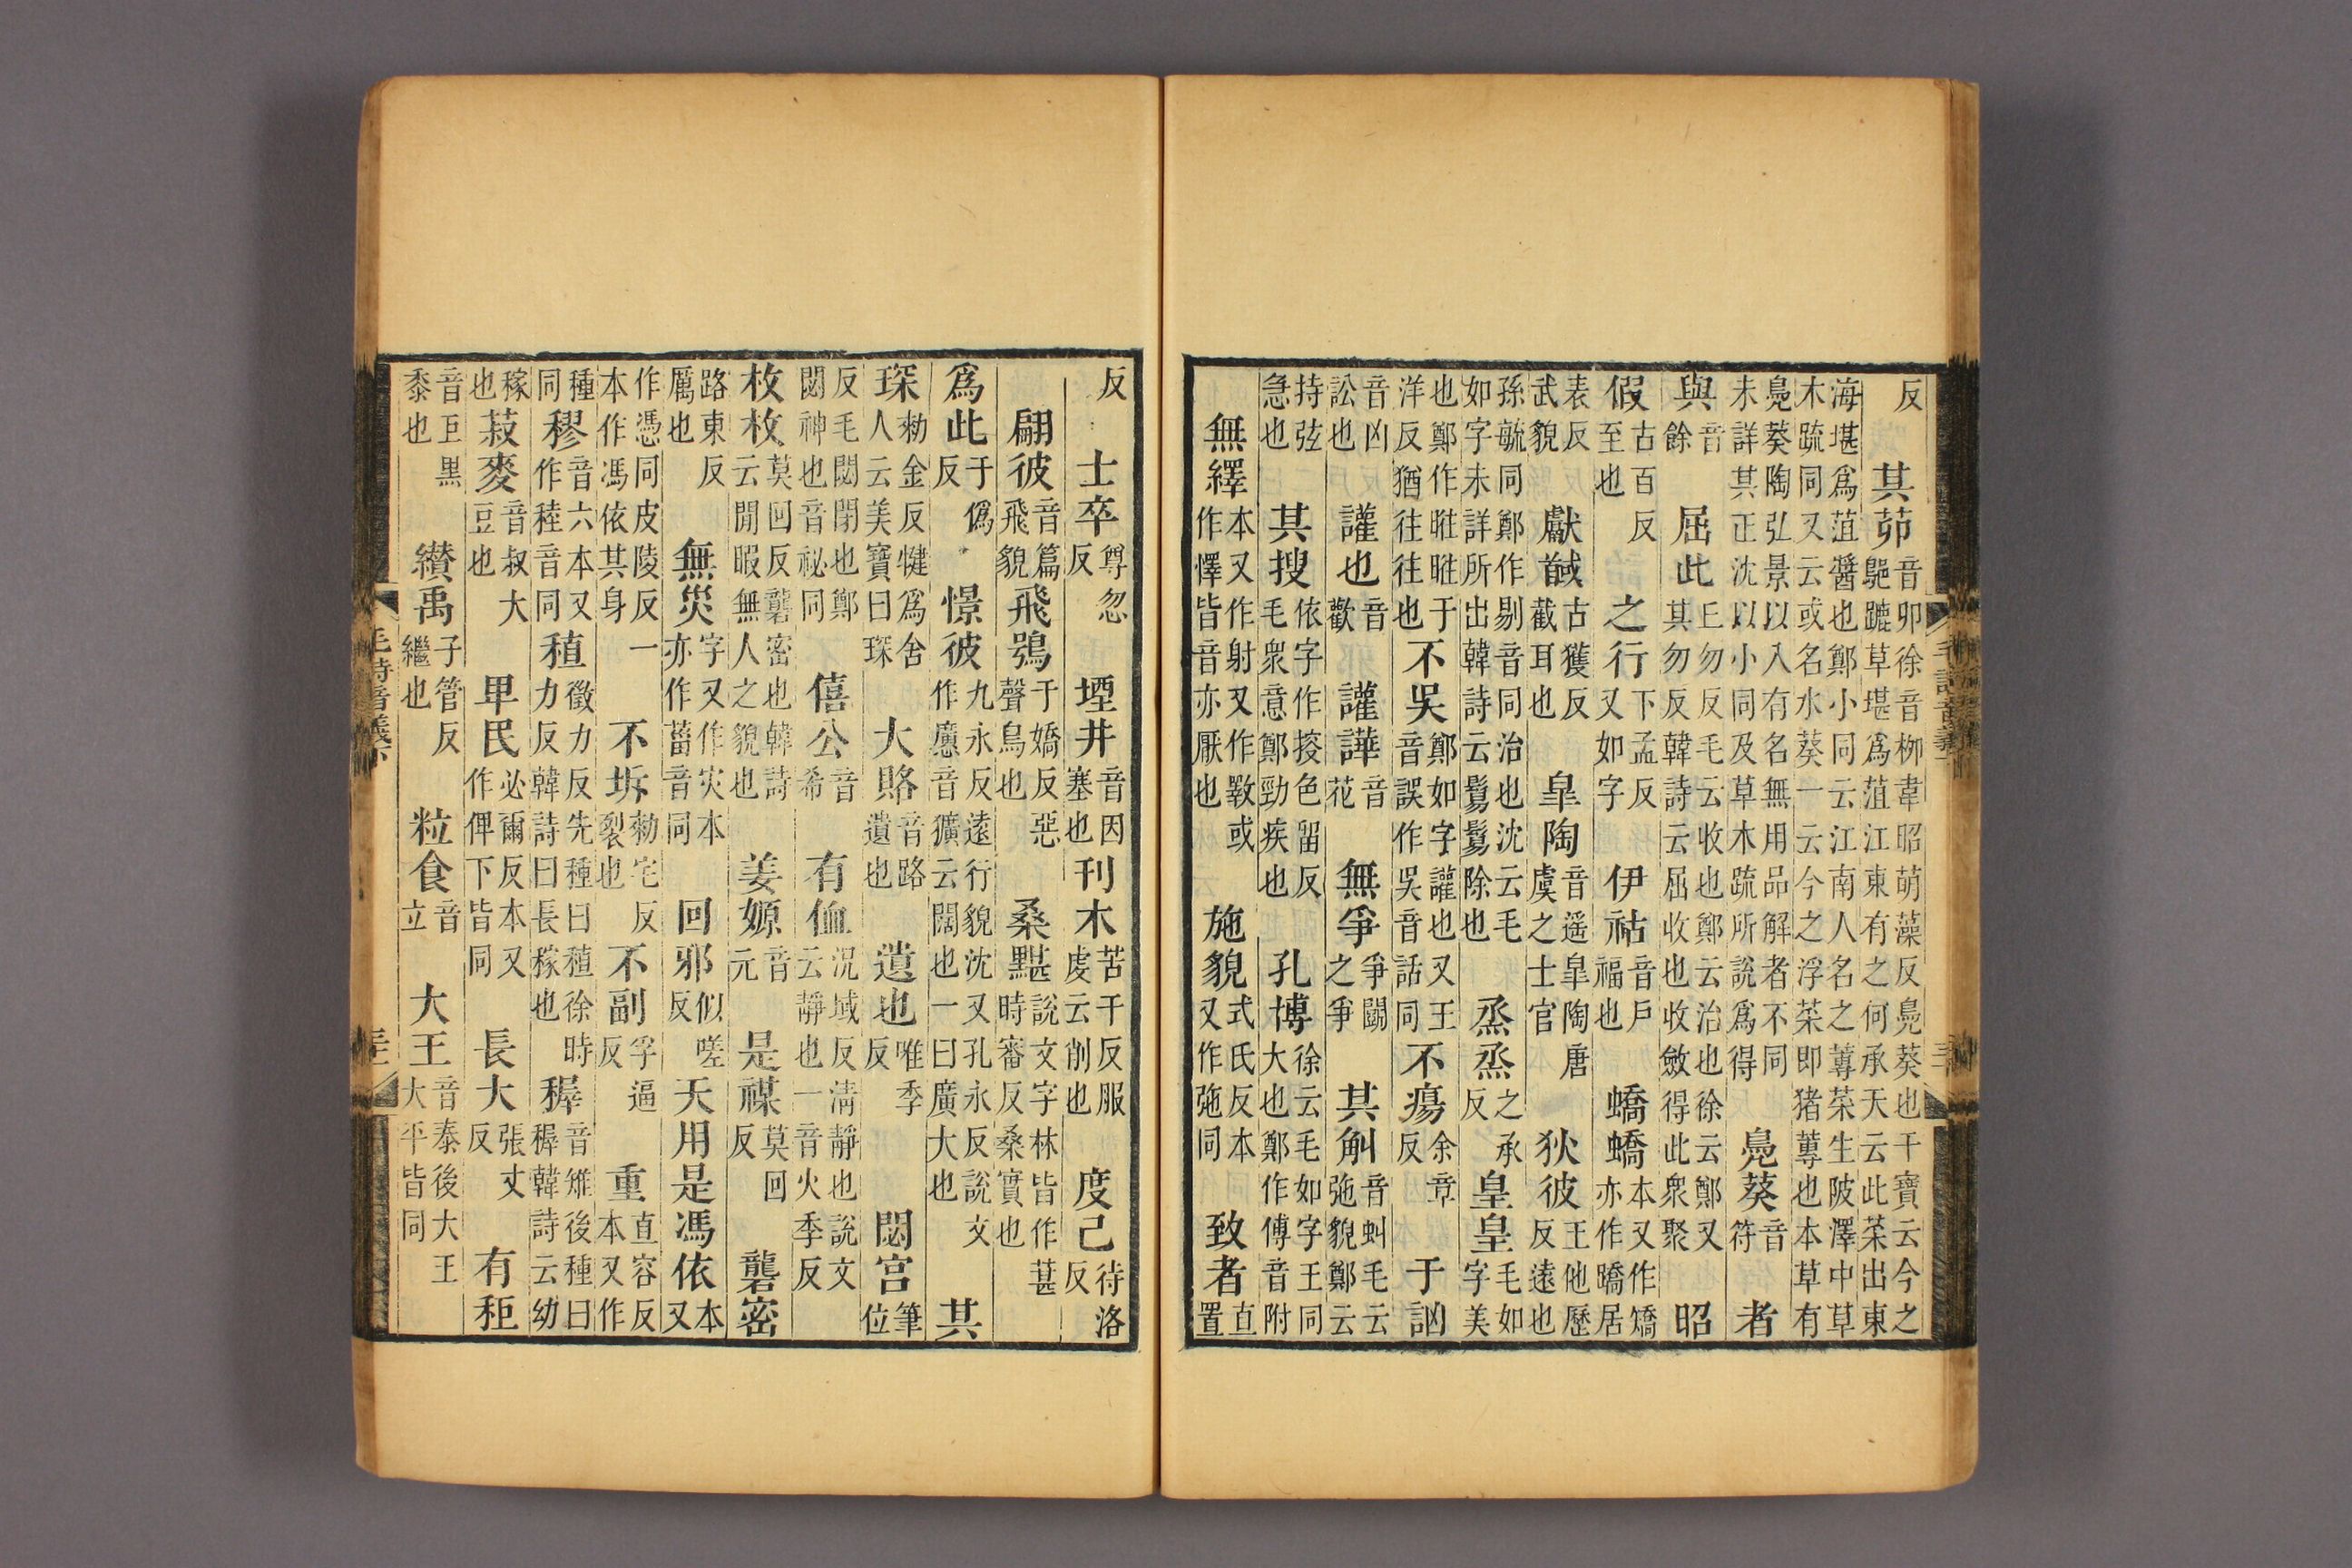 反 其茆音卯徐音柳韋昭萌藻反鳧葵也干寶云今之䰀蹗草堪爲菹江東有之何承天云此菜出東
海堪爲菹醬也鄭小同云江南人名之蓴菜生陂澤中草木疏同又云或名水葵一云今之浮菜即猪蓴也本草有
鳧葵陶弘景以入有名無用品解者不同未詳其正沈以小同及草木疏所說爲得 鳧葵音符 者
與音餘 屈此丘勿反毛云收也鄭云治也徐云鄭又其勿反韓詩云屈收也收斂得此衆聚 昭
假古百反至也 之行下孟反又如字 伊祜音戶福也 蟜蟜本又作矯亦作蹻居
表反武貌 獻馘古獲反截耳也 皐陶音遥皐陶唐虞之士官 狄彼王他歷反遠也
孫毓同鄭作剔音同治也沈云毛如字未詳所出韓詩云鬄鬄除也 烝烝之承反 皇皇毛如字美
也鄭作暀暀于洋反猶往往也 不吳鄭如字讙也又王音誤作吳音話同 不瘍余章反 于訩
音凶訟也 讙也音歡 讙譁音花 無爭爭鬭之爭 其觓音虯毛云弛貌鄭云
持弦急也 其搜依字作㨃色留反毛衆意鄭勁疾也 孔博徐云毛如字王同大也鄭作傅音附
無繹本又作射又作斁或作懌皆音亦厭也 施貌式氏反本又作弛同 致者直置
反 士卒尊忽反 堙井音因塞也 刊木苦干反服虔云削也 度己待洛反
翩彼音篇飛貌 飛鴞于嬌反惡聲鳥也 桑黮說文字林皆作葚時審反桑實也
爲此于僞反 憬彼九永反遠行貌沈又孔永反說文作懬音獷云闊也一曰廣大也 其
琛勑金反犍爲舍人云美寶曰琛 大賂音路遺也 遺也唯季反 閟宮筆位
反毛閟閉也鄭閟神也音祕同 僖公音希 有侐況域反清靜也說文云靜也一音火季反
枚枚莫回反礱密也韓詩云閒暇無人之貌也 姜嫄音元 是禖莫回反 礱密
路東反厲也 無災字又作灾本亦作菑音同 回邪似嗟反 天用是馮依本又
作憑同皮陵反一本作馮依其身 不坼勑宅反裂也 不副孚逼反 重直容反本又作
種同 穋音六本又作稑音同 稙徵力反先種曰稙徐時力反韓詩曰長稼也 穉音雉後種曰穉韓詩云幼
稼也 菽麥音叔大豆也 卑民必爾反本又作俾下皆同 長大張丈反 有秬
音巨黑黍也 纘禹子管反繼也 粒食音立 大王音泰後大王大平皆同
毛詩音義下